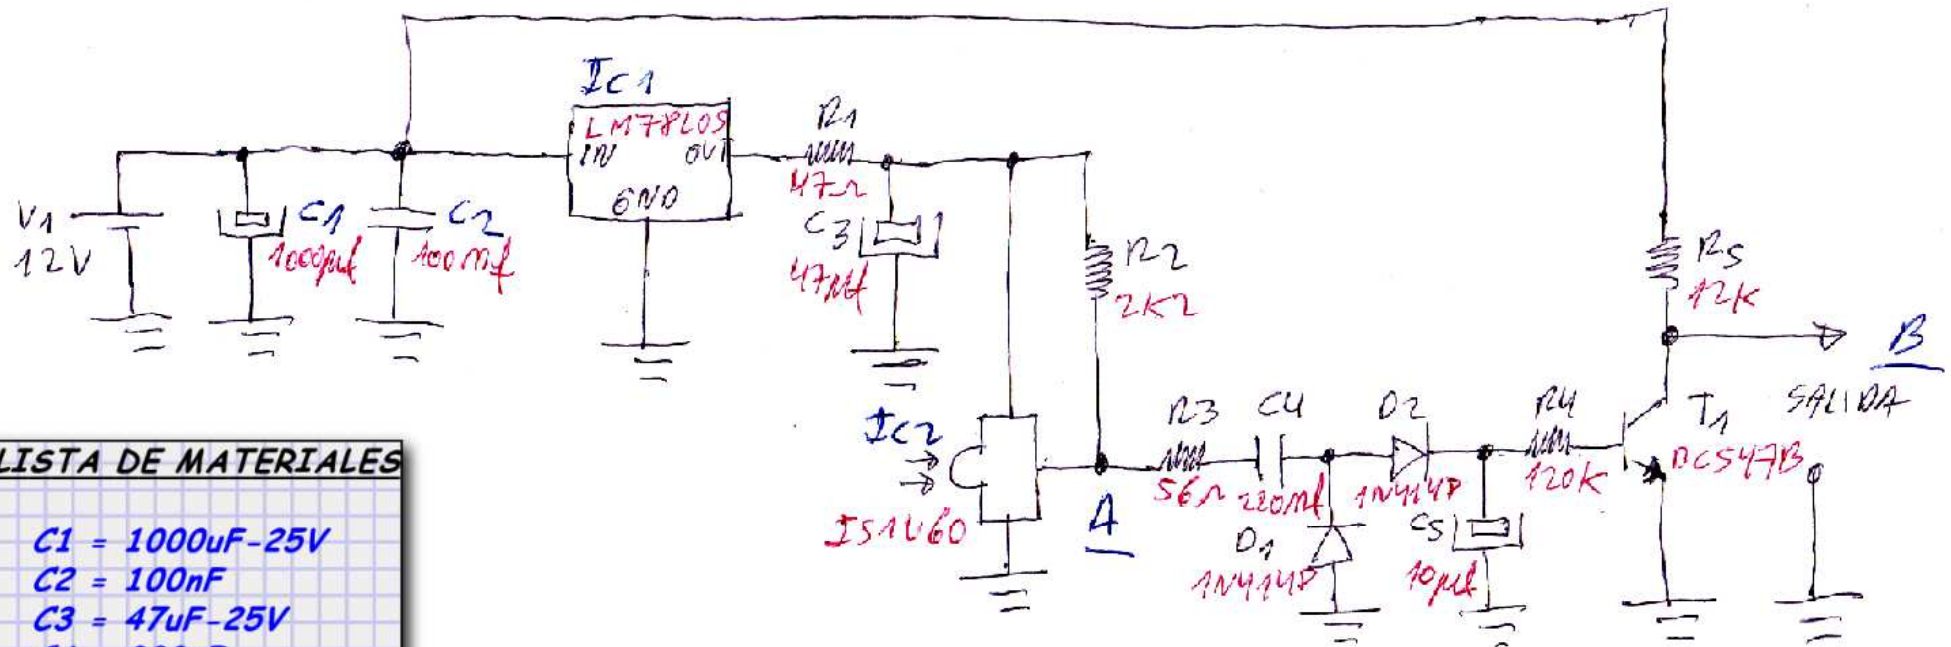 IC1
LM78L05
IN OUT
GND
V1
12V
C1
1000µf
C2
100nf
R1
47Ω
C3
47µf
R2
2K2
R5
12K
B
SALIDA
IC2
IS1U60
A
R3
56Ω
C4
220nf
D2
1N4148
D1
1N4148
C5
10µf
R4
120K
T1
BC547B
LISTA DE MATERIALES
C1 = 1000uF-25V
C2 = 100nF
C3 = 47uF-25V